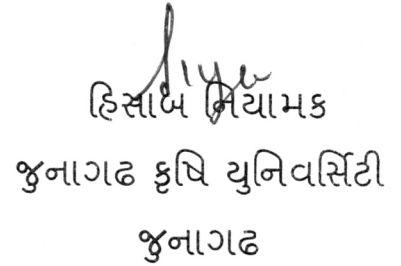 હિસાબ નિયામક
જુનાગઢ કૃષિ યુનિવર્સિટી
જુનાગઢ